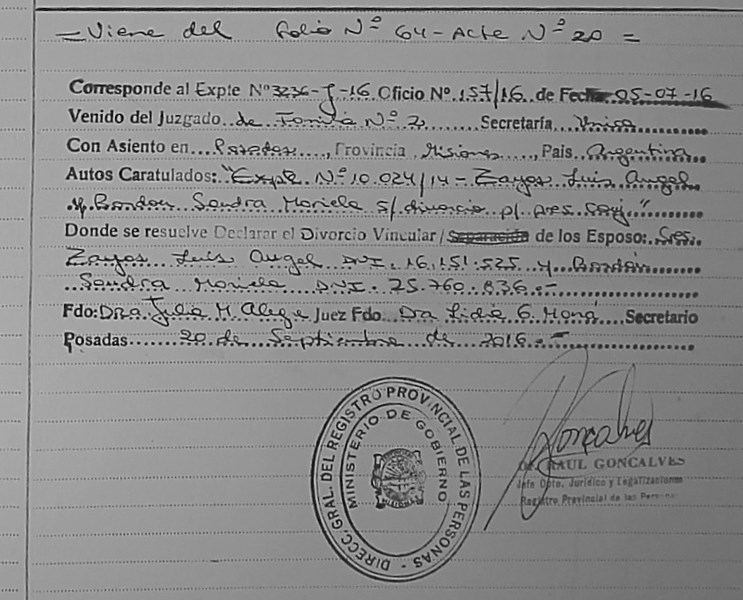 = Viene del Folio Nº 64 - Acta Nº 20 =
Corresponde al Expte Nº 3236-J-16 Oficio Nº 157/16 de Fecha 05-07-16
Venido del Juzgado de Familia Nº 2 Secretaría Unica
Con Asiento en Posadas, Provincia Misiones, Pais Argentina
Autos Caratulados: "Expte Nº 10.024/14 - Zayas Luis Angel
y Bordon Sandra Mariela s/ divorcio p/ pres. conj."
Donde se resuelve Declarar el Divorcio Vincular / Separación de los Esposo: Sres.
Zayas Luis Angel DNI. 16.151.525 y Bordón
Sandra Mariela DNI. 25.760.836.-
Fdo: Dra. Julia M. Alegre Juez Fdo. Dra Lidia G. Secretario
Posadas 20 de Septiembre de 2016.-
Goncalves
Dr. RAUL GONCALVES
Jefe Dpto. Jurídico y Legalizaciones
Registro Provincial de las Personas
DIRECC. GRAL. DEL REGISTRO PROVINCIAL DE LAS PERSONAS -
MINISTERIO DE GOBIERNO
MISIONES